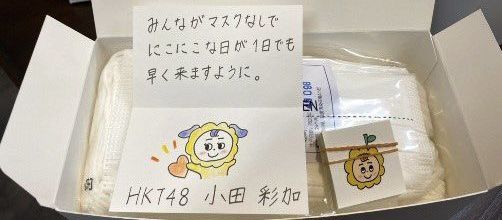 みんながマスクなしで
にこにこな日が1日でも
早く来ますように。
HKT48 小田 彩加